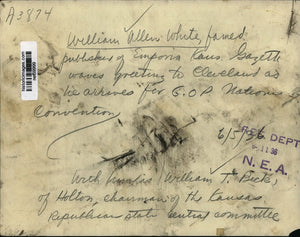 A3874
William Allen White, famed
publisher of Emporia Kans Gazette
waves greeting to Cleveland as
he arrives for G.O.P. National
Convention
6/5/36
REF. DEPT.
N.E.A.
With him is William T. Beck,
of Holton, chairman of the Kansas
Republican state central committee